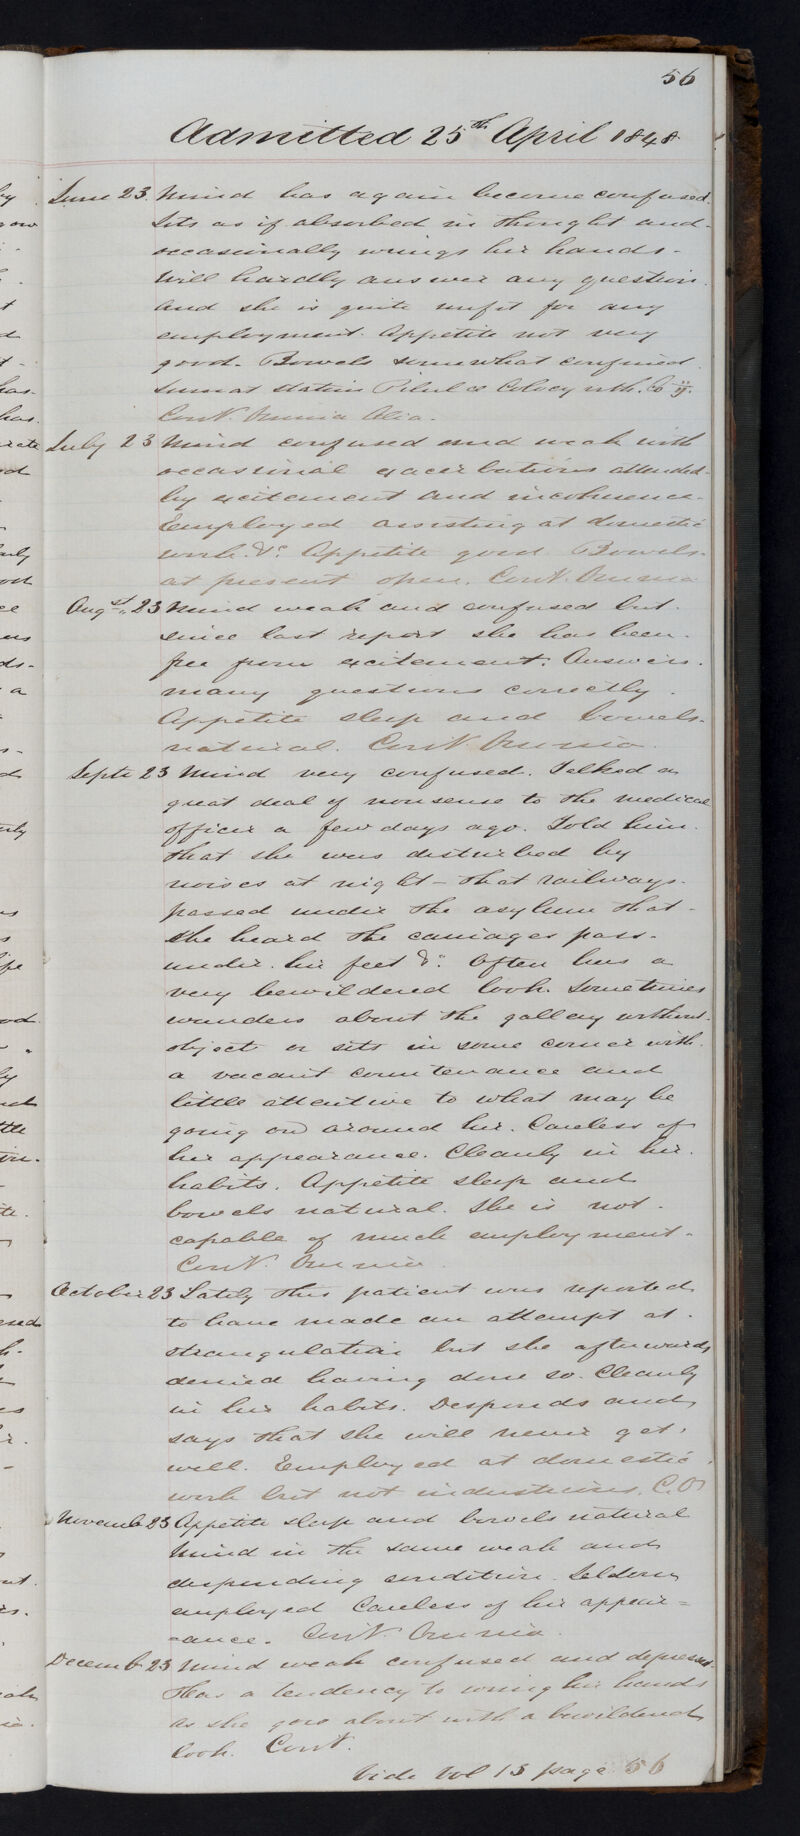 56
Admitted 25th April 1848
June 23. Mind has again become confused.
Sits as if absorbed in thought and
occasionally wrings her hands.
Will hardly answer any question.
And she is quite unfit for any
employment. Appetite not very
good. Bowels somewhat confined.
Sumat statim Pilulæ Colocynth. Co ij.
Cont. Omnia Alia.
July 23 Mind confused and weak with
occasional exacerbations attended
by excitement and incoherence.
Employed assisting at domestic
work &c. Appetite good Bowels
at present open. Cont. Omnia
Augst. 23 Mind weak and confused but
since last report she has been
free from excitement. Answers
many questions correctly.
Appetite sleep and bowels
natural. Cont. Omnia.
Septr 23 Mind very confused. Talked a
great deal of nonsense to the medical
officer a few days ago. Told him
that she was disturbed by
noises at night - that railways
passed under the asylum that
she heard the carriages pass
under her feet &c. Often has a
very bewildered look. Sometimes
wanders about the gallery without
object or sits in some corner with
a vacant countenance and
little attentive to what may be
going on around her. Careless of
her appearance. Cleanly in her
habits. Appetite sleep and
bowels natural. She is not
capable of much employment.
Cont. Omnia.
October 23 Lately this patient was reported
to have made an attempt at
strangulation but she afterwards
denied having done so. Cleanly
in her habits. Desponds and
says that she will never get
well. Employed at domestic
work but not industrious. C.O
Novemb 23 Appetite sleep and bowels natural
Mind in the same weak and
desponding condition. Seldom
employed Careless of her appear=
=ance. Cont. Omnia.
Decemb 23 Mind weak confused and depressed.
Has a tendency to wring her hands
as she goes about with a bewildered
look. Cont.
Vide Vol 15 page 56